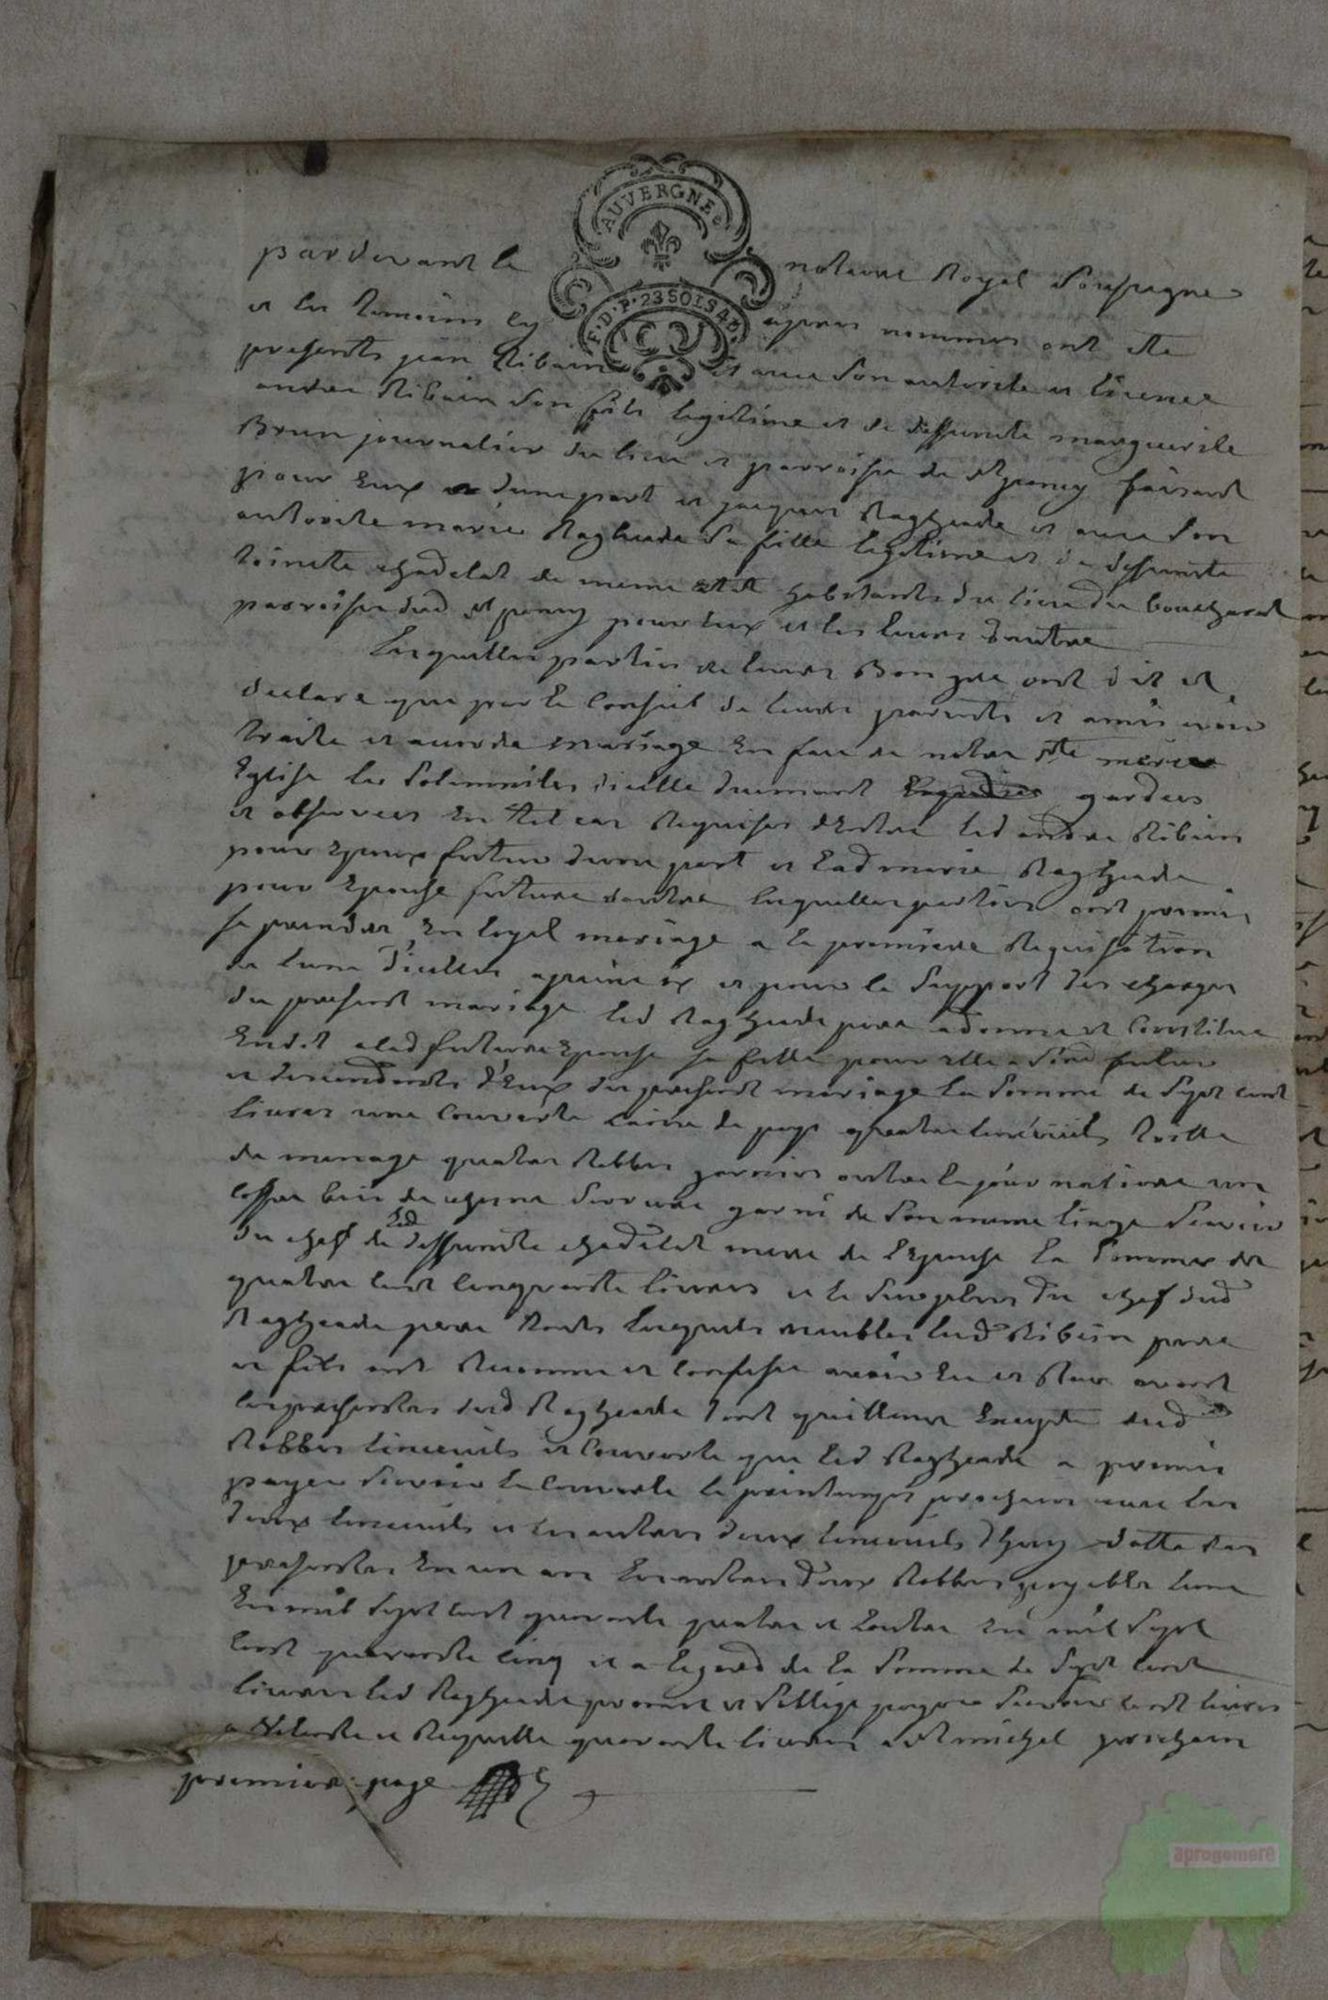 AUVERGNE
F.D.P. 2350IS4D.
pardevant le notaire Royal Soussigne
et les temoins cy apres nommes ont ete
presents jean Ribain et avec son autorite et licence
andre Ribain son fils legitime et de deffuncte marguerite
Brun journalier du lieu et parroisse de faisant
pour eux dune part et jacques Ragheade et avec son
autorite marie Ragheade sa fille legitime et de deffuncte
toinete chadelat de meme etat habitants du lieu du bouchavet
parroisse dud pour eux et les leurs dautre
Lesquelles parties de leurs Bon gre ont dit et
declare que par le Conseil de leurs parents et amis avoir
traite et acorde mariage En face de notre ste mere
Eglise les solemnites dicelle duement gardees
et observees En tel cas Requises Entre led andre Ribain
pour Epoux futur dune part et Lad marie Ragheade
pour Epouse future dautre lesquelles parties ont promis
se prendre En loyal mariage a la premiere Requisition
de lune dicelles a peine et pour le support des charges
du present mariage led Ragheade pere a donne et Constitue
En dot a lad future Epouse sa fille pour elle futur
et descendants d'Eux du present mariage la somme de sept cent
livres une Couverte laine de pays quatre linceuils toille
de menage quatre Robbes garnies outre la journaliere un
coffre bois de chene garni de son menu linge scavoir
du chef de lad deffuncte chadelat mere de l'Epouse la somme de
quatre cent cinquante livres et le surplus du chef dud
Ragheade pere touts lesquels meubles led Ribain pere
et fils ont Reconnu et Confesse avoir Eu et Receu avant
les presentes dud Ragheade dont quittance Excepte desd
Robbes linceuils et Couverte que led Ragheade a promis
payer scavoir la Couverte le printemps prochain avec les
deux linceuils et les autres deux linceuils d'huy datte des
presentes En un an Les autres deux Robbes payables lune
En mil sept cent quarante quatre et Lautre En mil sept
cent quarante cinq et a legard de la somme de sept cent
livres led Ragheade promet et soblige payer scavoir cent livres
quarante livres a st michel prochain
premiere page
aprogemere